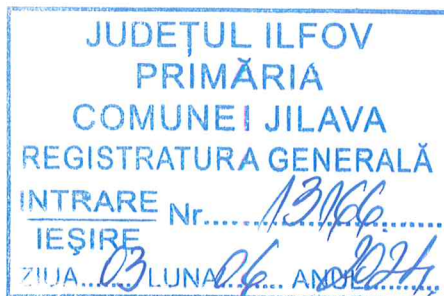 JUDEȚUL ILFOV
PRIMĂRIA
COMUNEI JILAVA
REGISTRATURA GENERALĂ
INTRARE Nr. 13166
IEȘIRE
ZIUA 03 LUNA 06 ANUL 2024